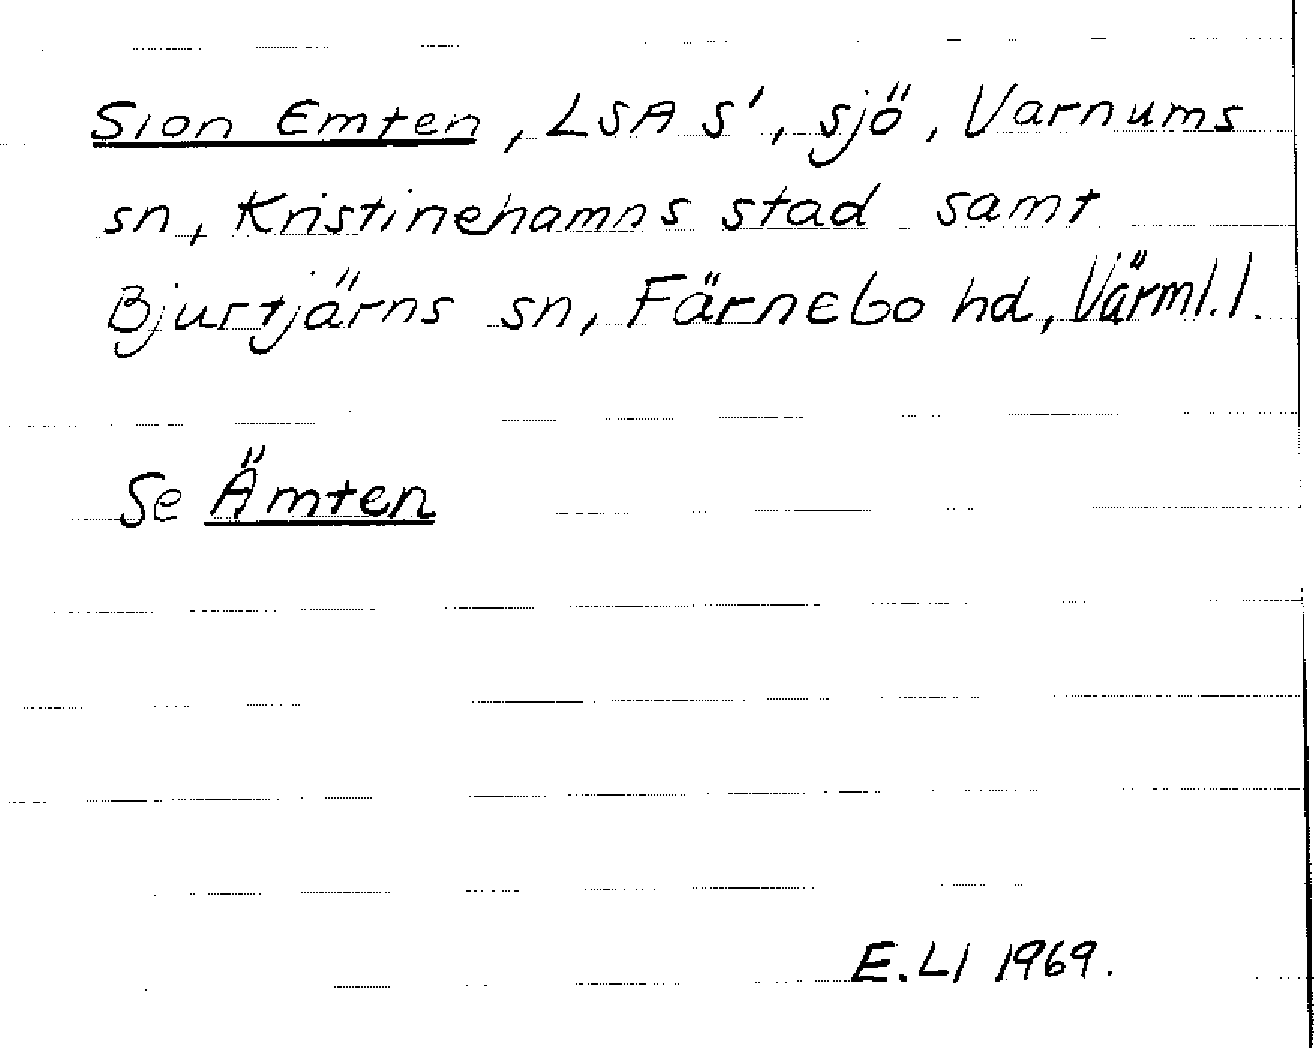 Sion Emten, LSA S', sjö, Varnums
sn, Kristinehamns stad samt
Bjurtjärns sn, Färnebo hd, Värml. l.
Se Ämten
E. Ll 1969.